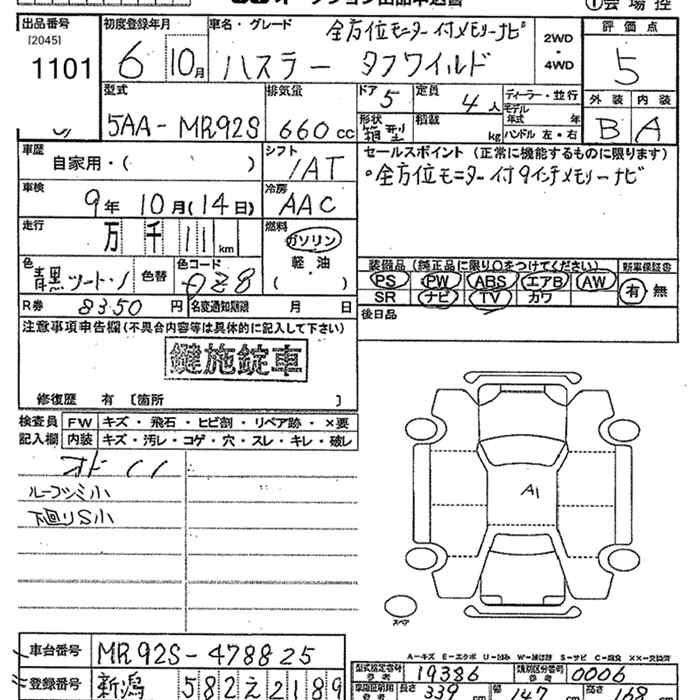 オークション出品申込書
①会場控
出品番号
[2045]
1101
初度登録年月
6 10月
車名・グレード
全方位モニター付メモリーナビ
ハスラー タフワイルド
2WD
・
4WD
評価点
5
外装 内装
B A
型式
5AA-MR92S
排気量
660 cc
ドア 5
形状
箱型
定員 4 人
積載 kg
ディーラー・並行
モデル
年式 年
ハンドル 左・右
車歴
自家用・( )
シフト
IAT
車検
9年 10月(14日)
冷房
AAC
走行
万 千 111 km
燃料
ガソリン
軽・油
( )
色
青黒ツートン
色替
色コード
R券 8350 円
名変通知期限 月 日
セールスポイント (正常に機能するものに限ります)
○全方位モニター付9インチメモリーナビ
装備品(純正品に限り○をつけてください)
PS PW ABS エアB AW
SR ナビ TV カワ
新車保証書
有・無
後日品
注意事項申告欄(不具合内容等は具体的に記入して下さい)
鍵施錠車
修復歴 有 〔箇所 〕
検査員
記入欄
FW キズ・飛石・ヒビ割・リペア跡・×要
内装 キズ・汚レ・コゲ・穴・スレ・キレ・破レ
ルーフツミ小
下廻りS小
A1
スペア
A-キズ E-エクボ U-凹み W-補修跡 S-サビ C-腐食 XX-交換済
車台番号 MR92S-478825
登録番号 新潟 582 え 2189
型式指定番号
参考
19386
類別区分番号
参考
0006
長さ 339 cm 幅 147 cm 高さ 168 cm